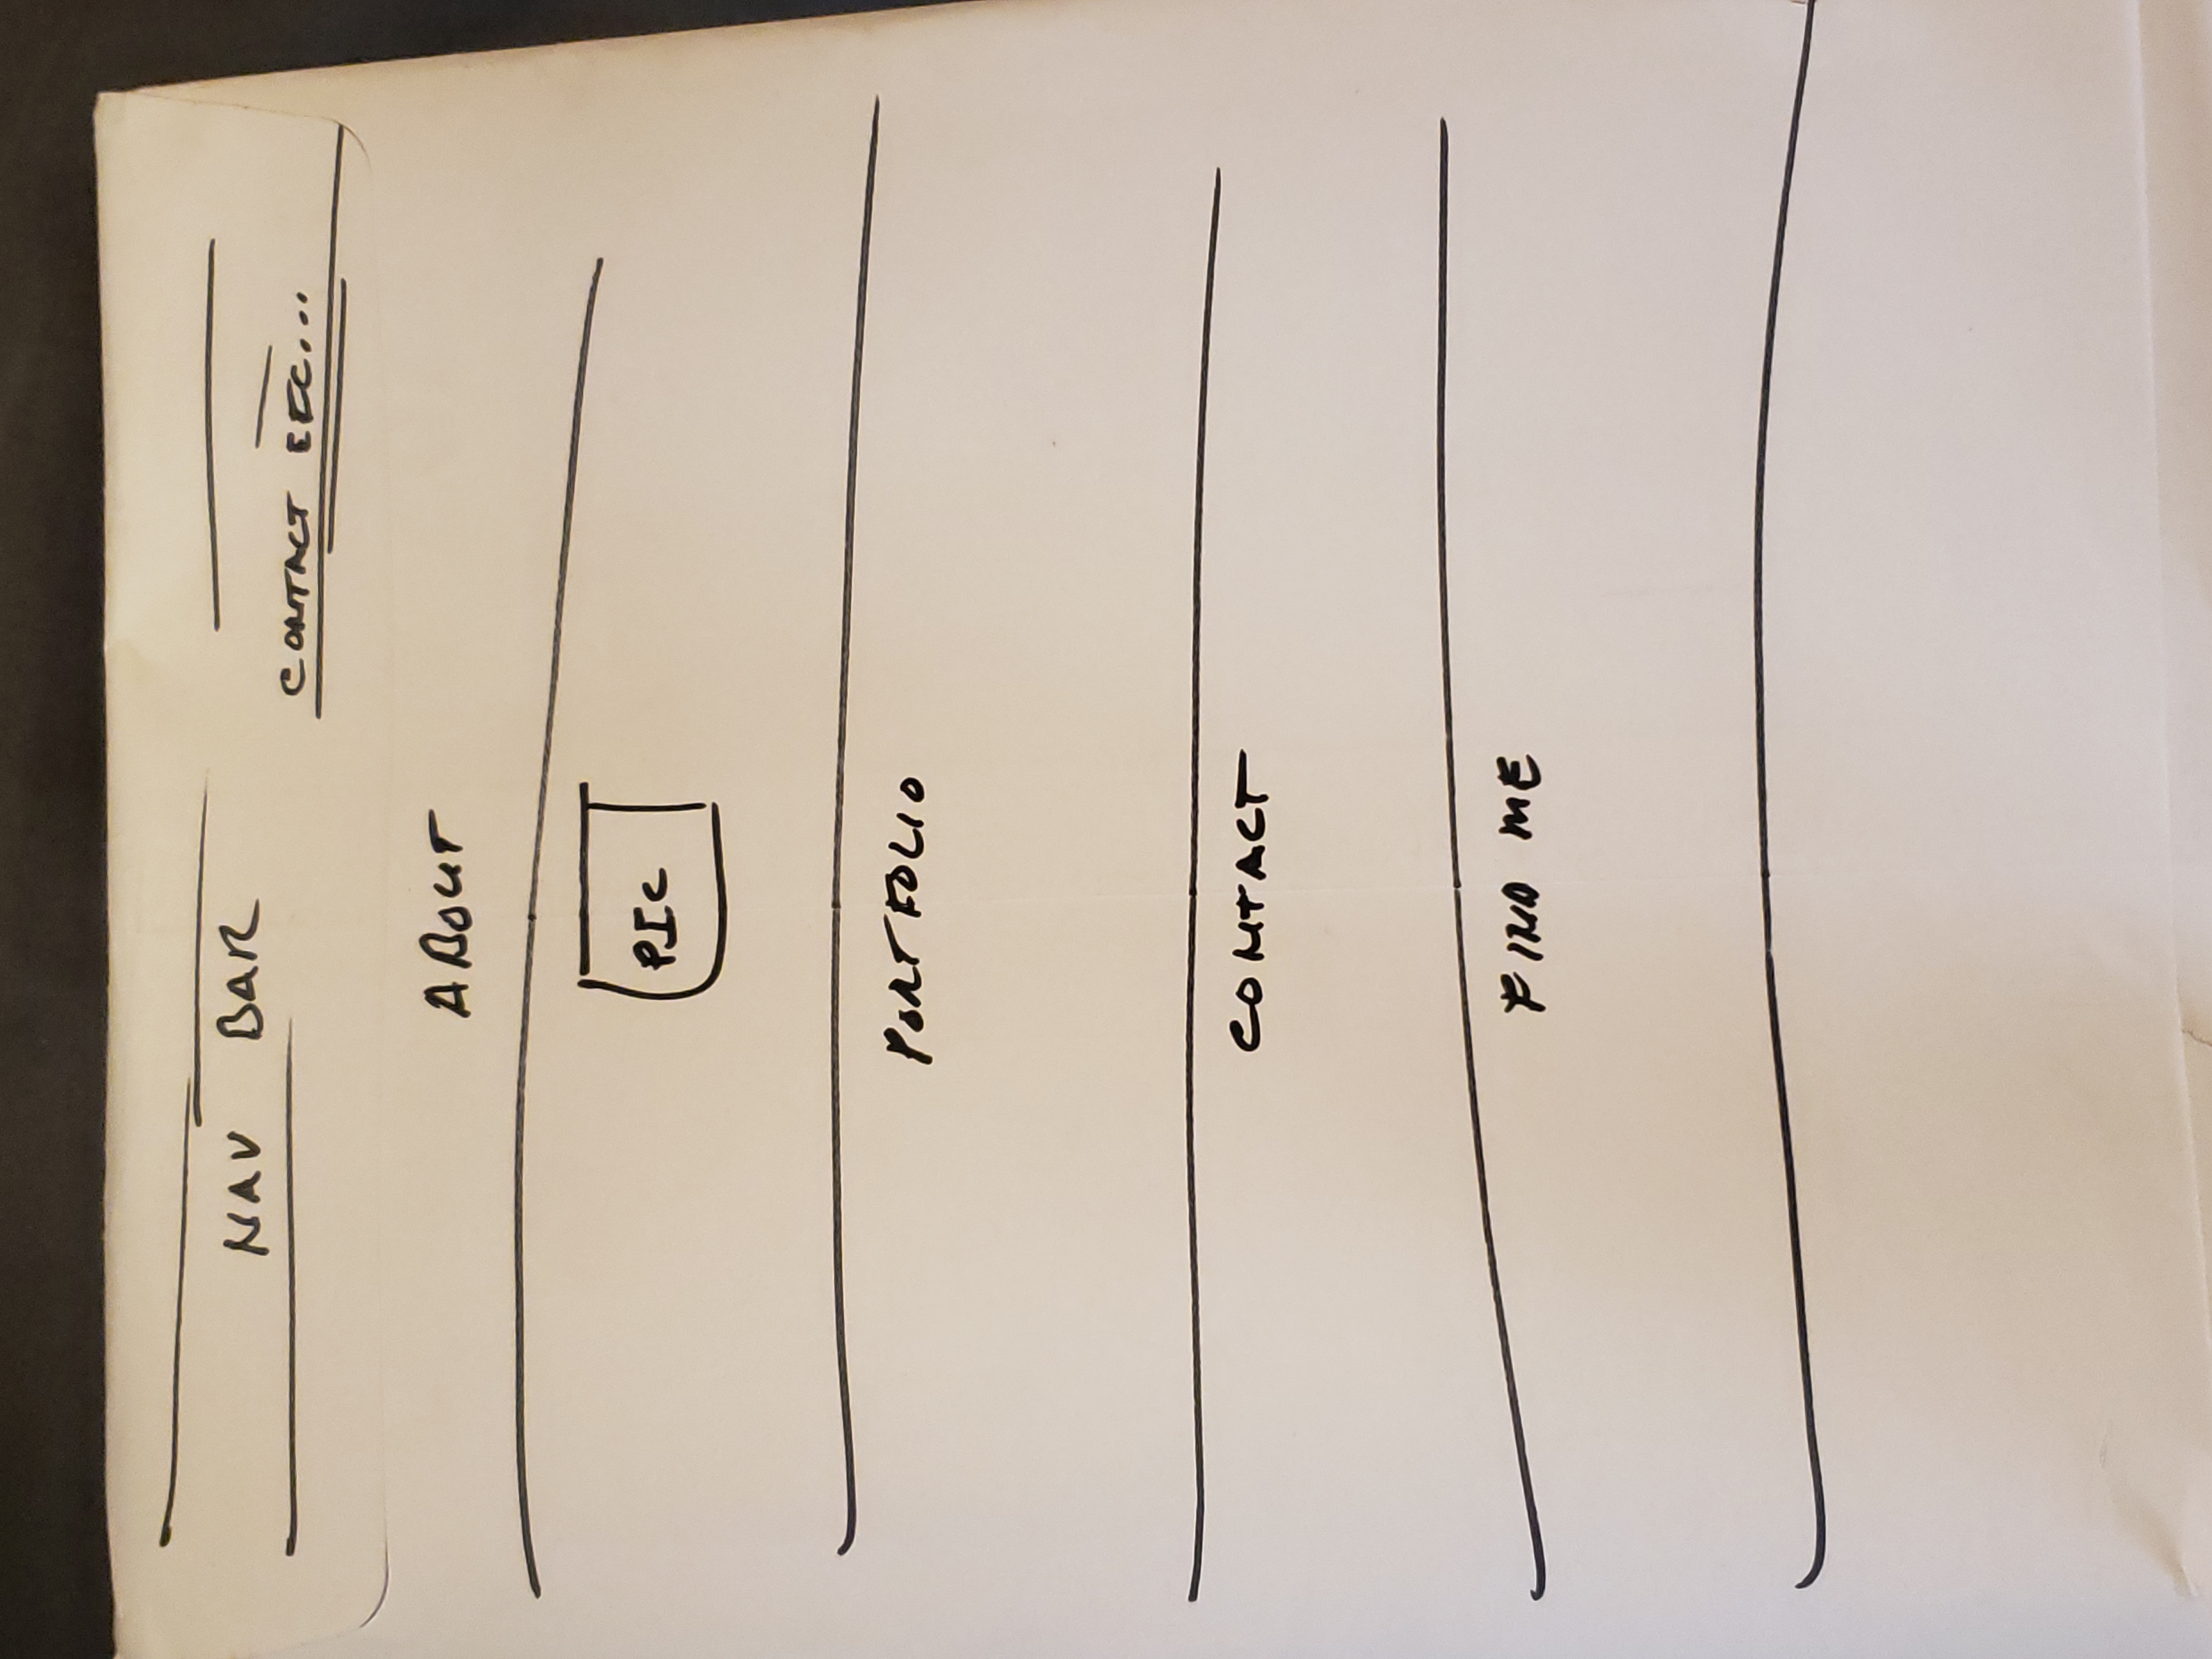 NAV BAR
CONTACT ETC...
ABOUT
PIC
PORTFOLIO
CONTACT
FIND ME